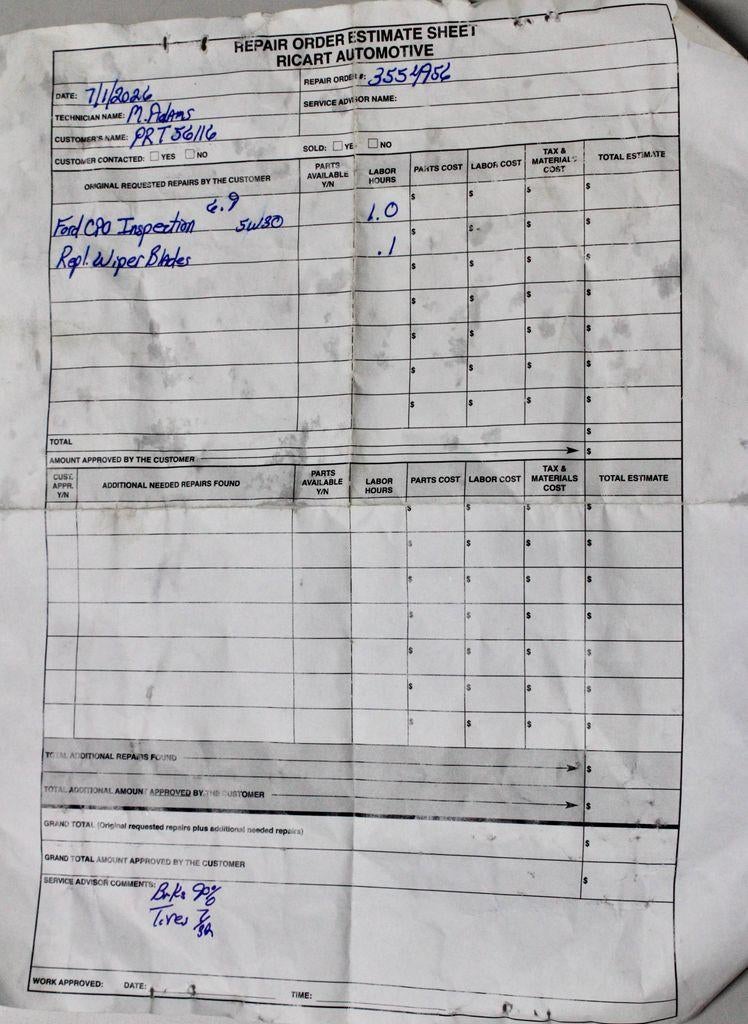 REPAIR ORDER ESTIMATE SHEET
RICART AUTOMOTIVE
DATE: 7/1/2026
REPAIR ORDER #: 3554956
TECHNICIAN NAME: M. Adams
SERVICE ADVISOR NAME:
CUSTOMER'S NAME: PRT56116
CUSTOMER CONTACTED: YES NO
SOLD: YE NO
ORIGINAL REQUESTED REPAIRS BY THE CUSTOMER
PARTS AVAILABLE Y/N
LABOR HOURS
PARTS COST
LABOR COST
TAX & MATERIALS COST
TOTAL ESTIMATE
6.9
Ford CPO Inspection 5W30 1.0 $ $ $ $
Repl. Wiper Blades .1 $ $ $ $
$ $ $ $
$ $ $ $
$ $ $ $
$ $ $ $
$ $ $ $
TOTAL $
AMOUNT APPROVED BY THE CUSTOMER $
CUST. APPR. Y/N
ADDITIONAL NEEDED REPAIRS FOUND
PARTS AVAILABLE Y/N
LABOR HOURS
PARTS COST
LABOR COST
TAX & MATERIALS COST
TOTAL ESTIMATE
$ $ $ $
$ $ $ $
$ $ $ $
$ $ $ $
$ $ $ $
$ $ $ $
$ $ $ $
TOTAL ADDITIONAL REPAIRS FOUND $
TOTAL ADDITIONAL AMOUNT APPROVED BY THE CUSTOMER $
GRAND TOTAL (Original requested repairs plus additional needed repairs) $
GRAND TOTAL AMOUNT APPROVED BY THE CUSTOMER $
SERVICE ADVISOR COMMENTS:
Brks 90%
Tires 7/32
WORK APPROVED: DATE: TIME: